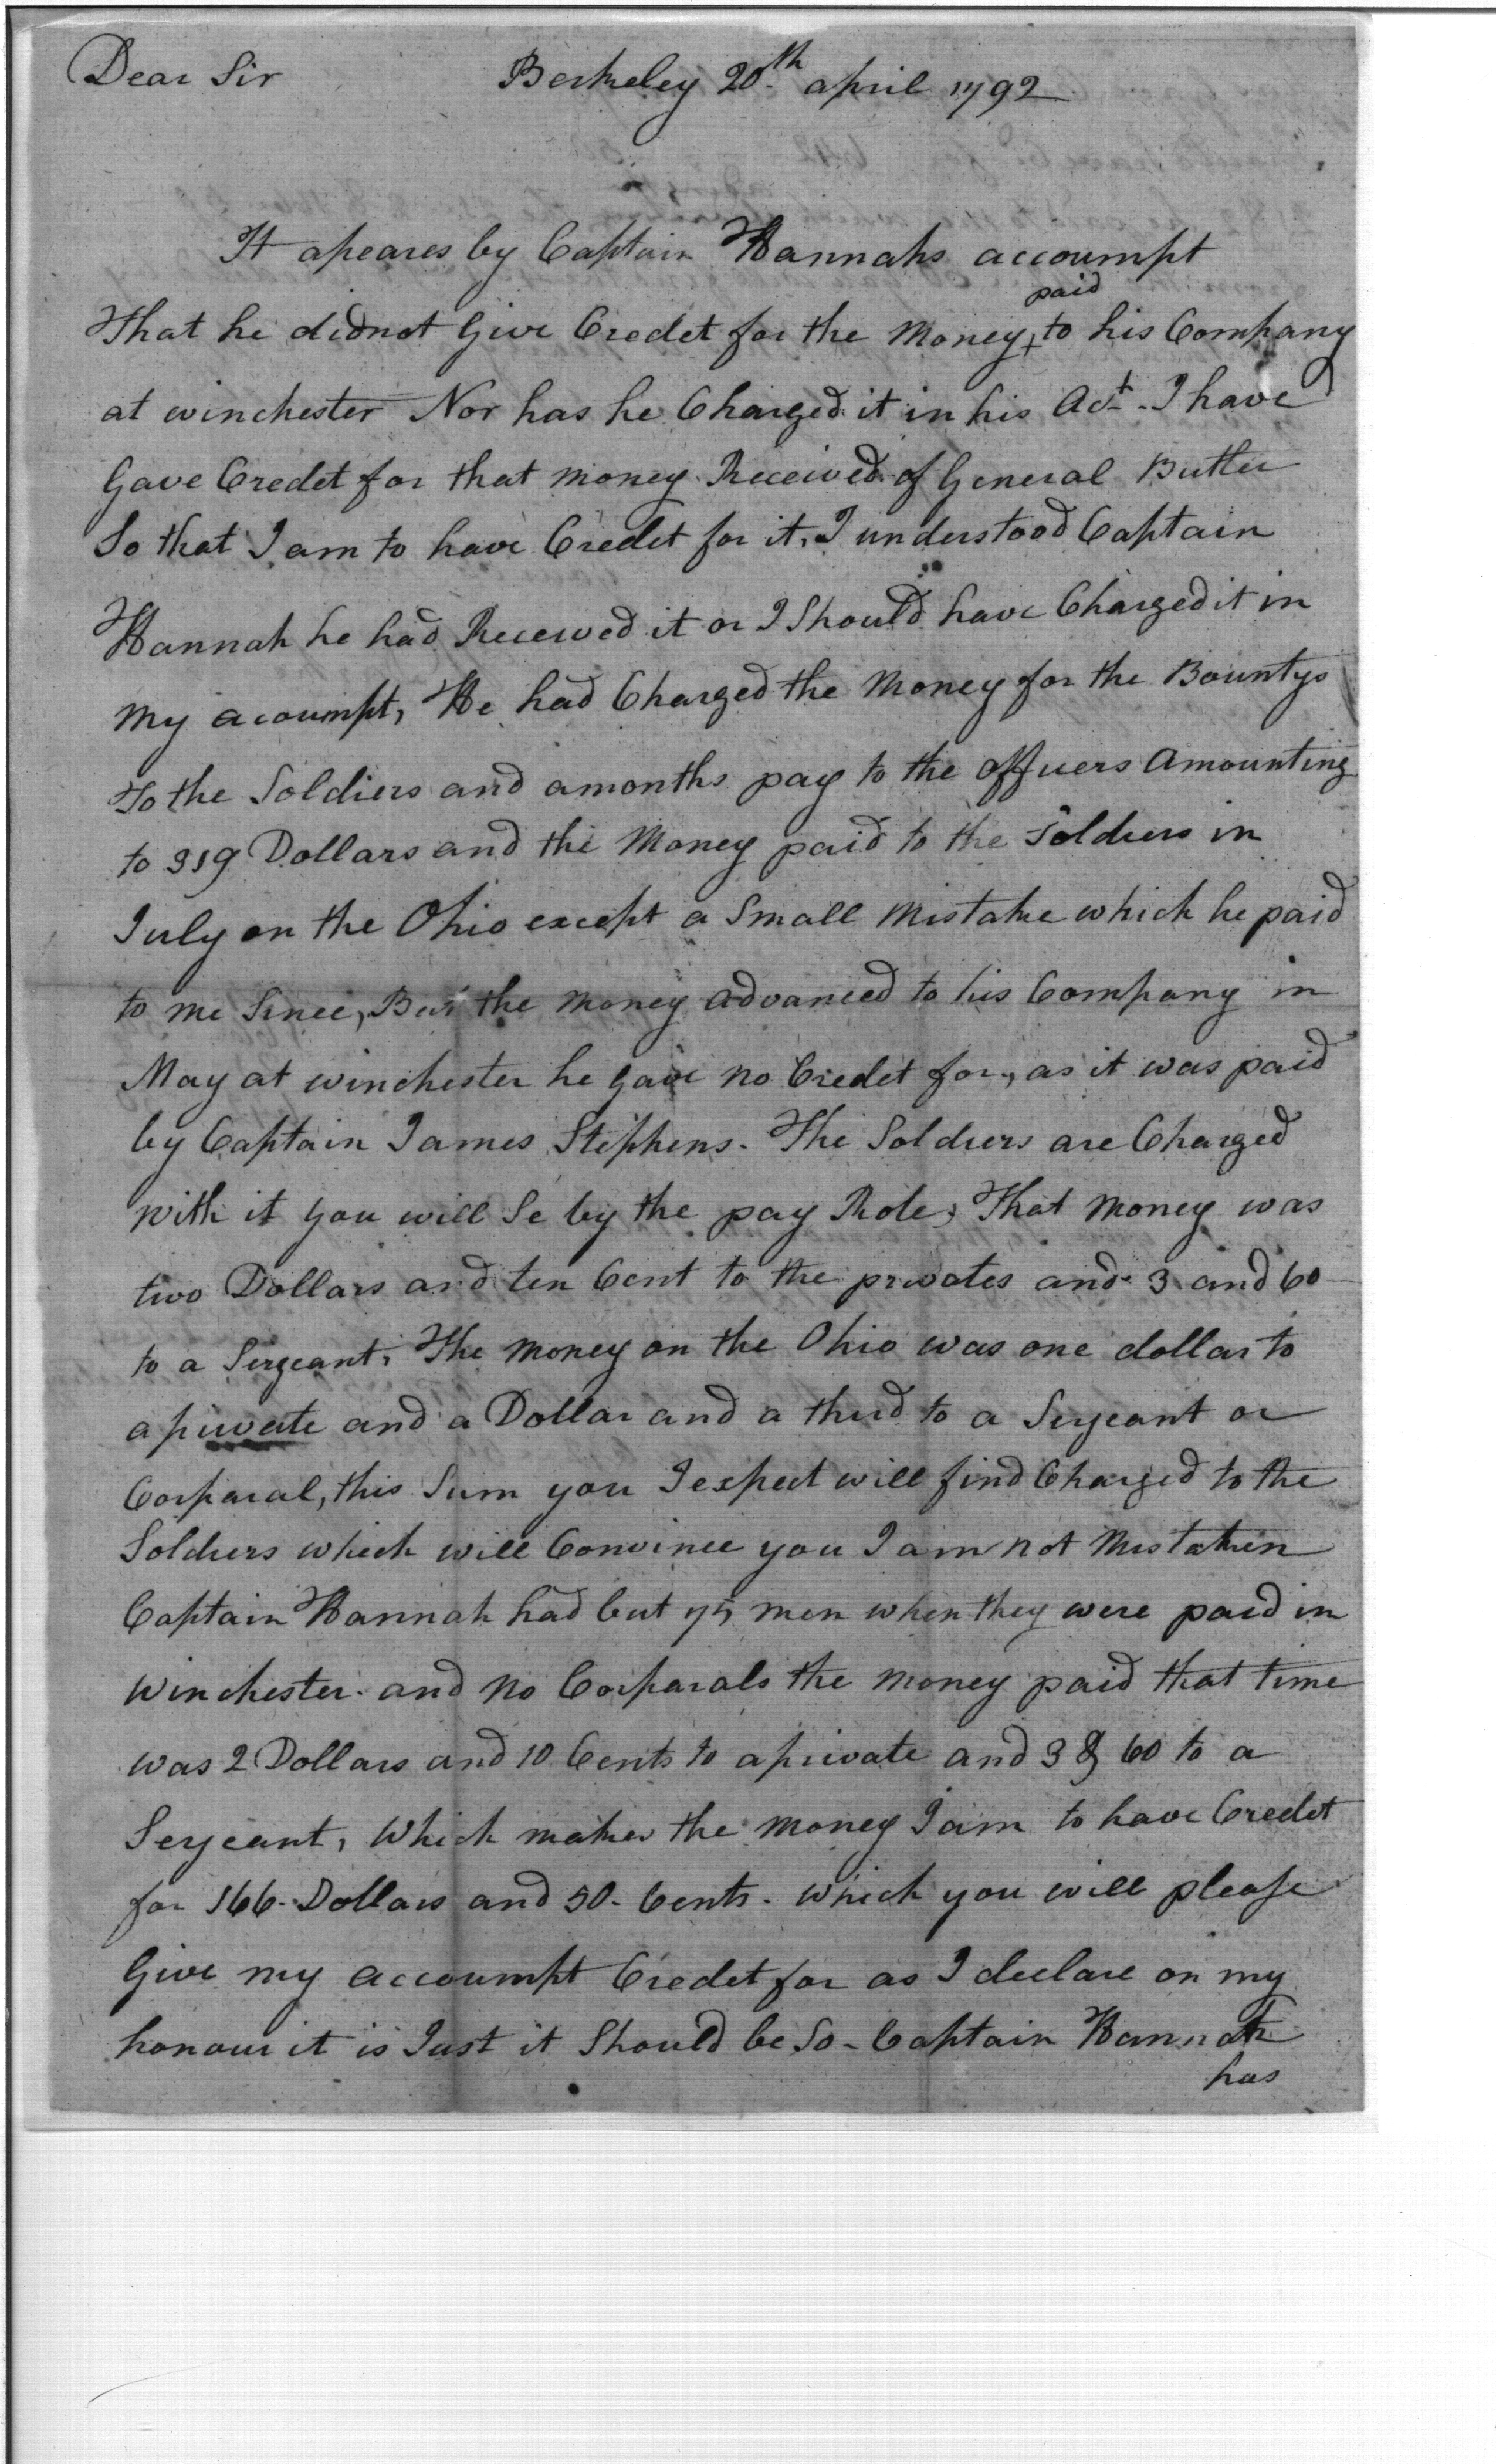 Dear Sir Berkeley 20th april 1792
It apeares by Captain Hannahs accoumpt
paid
That he didnot Give Credet for the Money to his Company
at winchester Nor has he Charged it in his Act. I have
Gave Credet for that money Received of General Butler
So that I am to have Credet for it, I understood Captain
Hannah he had Received it or I Should have Charged it in
my acoumpt, He had Charged the Money for the Bountys
to the Soldiers and amonths pay to the officers Amounting
to 319 Dollars and the Money paid to the Soldiers in
July on the Ohio except a Small Mistake which he paid
to me Since, But the money advanced to his Company in
May at winchester he Gave no Credet for, as it was paid
by Captain James Stephens. The Soldiers are Charged
with it you will Se by the pay Role, That Money was
two Dollars and ten Cent to the privates and 3 and 60
to a Sergeant, The Money on the Ohio was one dollar to
a private and a Dollar and a third to a Sergeant or
Corparal, this Sum you I expect will find Charged to the
Soldiers which will Convince you I am not Mistaken
Captain Hannah had but 75 men when they were paid in
winchester and no Corparals the money paid that time
was 2 Dollars and 10 Cents to aprivate and 3 & 60 to a
Serjeant, Which makes the Money I am to have Credet
for 166. Dollars and 50. Cents. which you will please
Give my accoumpt Credet for as I declare on my
honour it is Just it Should be So - Captain Hannah
has